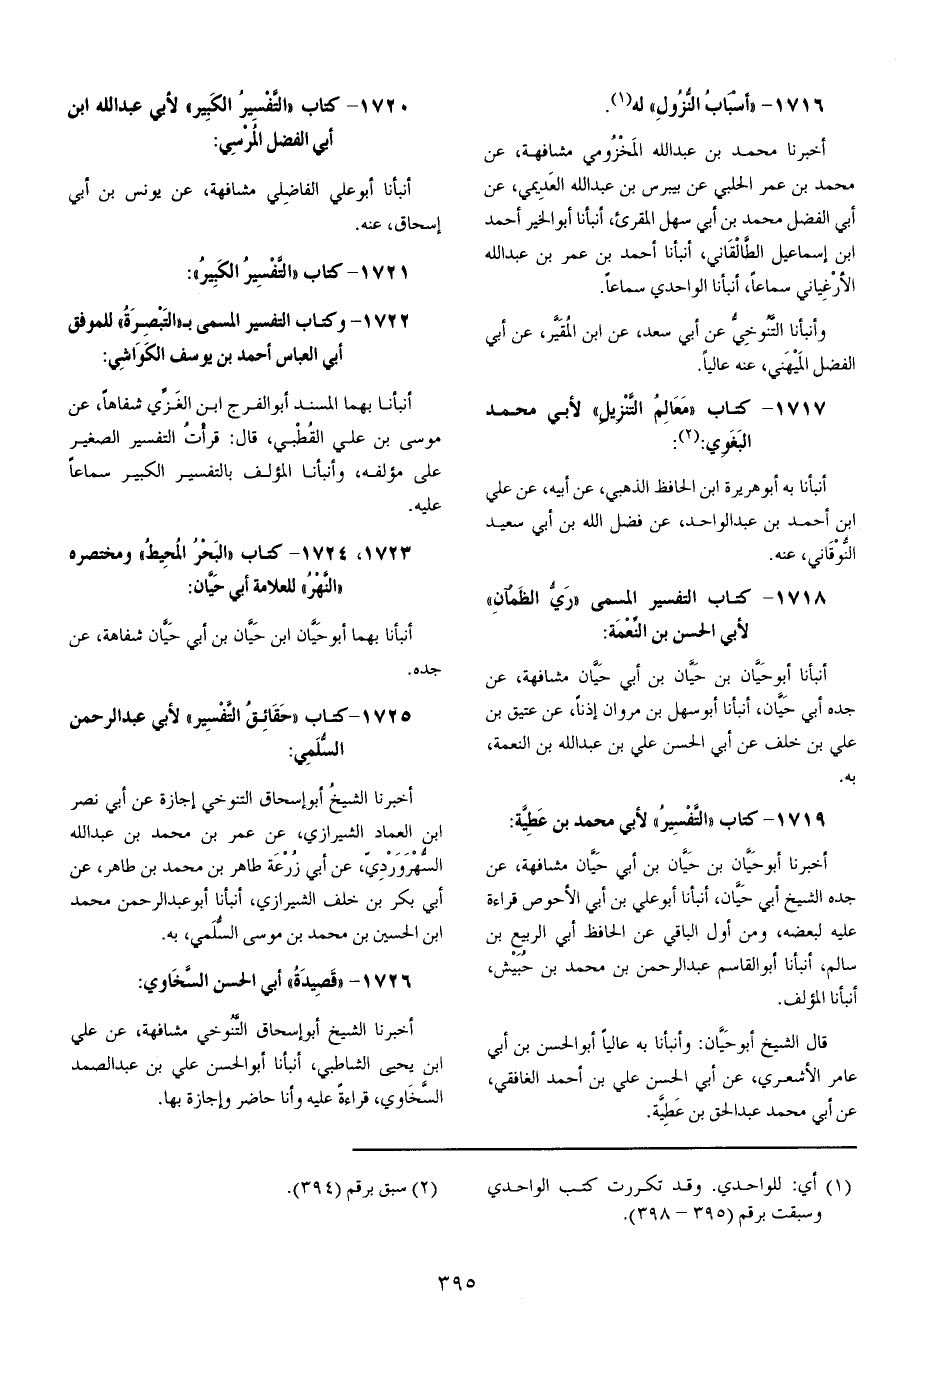 ١٧١٦- «أسْبَابُ النُّزُولِ» له(١).
أخبرنا محمد بن عبدالله المَخْزُومي مشافهة، عن
محمد بن عمر الحلبي عن بيبرس بن عبدالله العَدِيمي، عن
أبي الفضل محمد بن أبي سهل المقرئ، أنبأنا أبوالخير أحمد
ابن إسماعيل الطَّالْقَاني، أنبأنا أحمد بن عمر بن عبدالله
الأرْغِياني سماعاً، أنبأنا الواحدي سماعاً.
وأنبأنا التَّنُوخِيُّ عن أبي سعد، عن ابن المُقَيَّر، عن أبي
الفضل المَيْهَني، عنه عالياً.
١٧١٧- كتاب «مَعَالِمُ التَّنْزِيلِ» لأبي محمد
البَغَوِي:(٢):
أنبأنا به أبوهريرة ابن الحافظ الذهبي، عن أبيه، عن علي
ابن أحمد بن عبدالواحد، عن فضل الله بن أبي سعيد
النُّوْقَاني، عنه.
١٧١٨- كتاب التفسير المسمى «رَيُّ الظَمْآن»
لأبي الحسن بن النِّعْمَة:
أنبأنا أبوحَيَّان بن حَيَّان بن أبي حَيَّان مشافهة، عن
جده أبي حَيَّان، أنبأنا أبوسهل بن مروان إذناً، عن عتيق بن
علي بن خلف عن أبي الحسن علي بن عبدالله بن النعمة،
به.
١٧١٩- كتاب «التَّفْسِيرُ» لأبي محمد بن عَطِيَّة:
أخبرنا أبوحَيَّان بن حَيَّان بن أبي حَيَّان مشافهة، عن
جده الشيخ أبي حَيَّان، أنبأنا أبوعلي بن أبي الأحوص قراءة
عليه لبعضه، ومن أول الباقي عن الحافظ أبي الربيع بن
سالم، أنبأنا أبوالقاسم عبدالرحمن بن محمد بن حُبَيْش،
أنبأنا المؤلف.
قال الشيخ أبوحَيَّان: وأنبأنا به عالياً أبوالحسن بن أبي
عامر الأشعري، عن أبي الحسن علي بن أحمد الغافقي،
عن أبي محمد عبدالحق بن عَطِيَّة.
١٧٢٠- كتاب «التَّفْسِيرُ الكَبِير» لأبي عبدالله ابن
أبي الفضل المُرْسِي:
أنبأنا أبوعلي الفاضِلي مشافهة، عن يونس بن أبي
إسحاق، عنه.
١٧٢١- كتاب «التَّفْسِيرُ الكَبِيرُ»:
١٧٢٢- وكتاب التفسير المسمى بـ«التَبْصِرَةُ» للموفق
أبي العباس أحمد بن يوسف الكَوَاشي:
أنبأنا بهما المسند أبوالفرج ابن الغَزِّي شفاهاً، عن
موسى بن علي القُطْبي، قال: قرأتُ التفسير الصغير
على مؤلفه، وأنبأنا المؤلف بالتفسير الكبير سماعاً
عليه.
١٧٢٣، ١٧٢٤- كتاب «البَحْرُ المُحِيطُ» ومختصره
«النَّهْرُ» للعلامة أبي حَيَّان:
أنبأنا بهما أبوحَيَّان ابن حَيَّان بن أبي حَيَّان شفاهة، عن
جده.
١٧٢٥-كتاب «حَقَائِقُ التَّفْسِير» لأبي عبدالرحمن
السُّلَمِي:
أخبرنا الشيخُ أبوإسحاق التنوخي إجازة عن أبي نصر
ابن العماد الشيرازي، عن عمر بن محمد بن عبدالله
السُّهْرَوَرْدِيّ، عن أبي زُرْعَة طاهر بن محمد بن طاهر، عن
أبي بكر بن خلف الشيرازي، أنبأنا أبوعبدالرحمن محمد
ابن الحسين بن محمد بن موسى السُّلَمي، به.
١٧٢٦- «قَصِيدَةُ» أبي الحسن السَّخَاوي:
أخبرنا الشيخ أبوإسحاق التَّنُوخي مشافهة، عن علي
ابن يحيى الشاطبي، أنبأنا أبوالحسن علي بن عبدالصمد
السَّخَاوي، قراءةً عليه وأنا حاضر وإجازة بها.
(١) أي: للواحدي. وقد تكررت كتب الواحدي
وسبقت برقم (٣٩٥ – ٣٩٨).
(٢) سبق برقم (٣٩٤).
٣٩٥